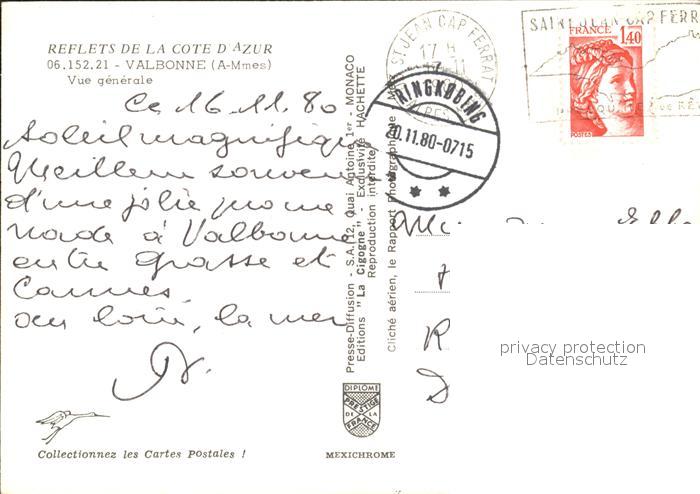 REFLETS DE LA COTE D'AZUR
06.152.21 - VALBONNE (A-Mmes)
Vue générale
Ce 16.11.80
Soleil magnifique
Meilleur souvenir
d'une jolie prome
nade à Valbonne
entre Grasse et
Cannes,
au loin, la mer
Collectionnez les Cartes Postales !
Presse-Diffusion - S.A. 12, Quai Antoine 1er - MONACO
Editions "La Cigogne" - Exclusivité HACHETTE
Reproduction interdite
Cliché aérien, le Rapport Photographique
DIPLOME
PRESTIGE
DE LA
FRANCE
MEXICHROME
ST JEAN CAP FERRAT
17 H
RINGKØBING
20.11.80-0715
SAINT JEAN CAP FERRAT
FRANCE
1,40
POSTES
R
D
privacy protection
Datenschutz